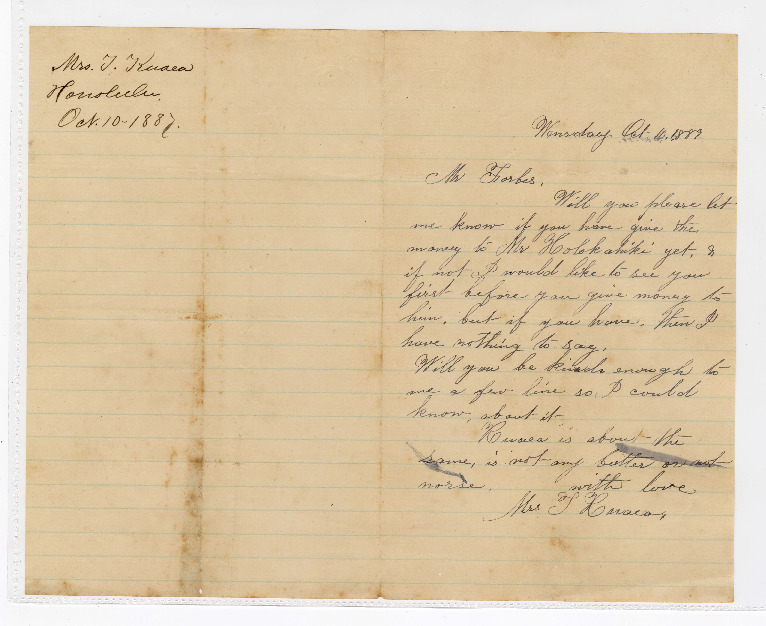 Mrs. T. Kuaea
Honolulu,
Oct. 10-1887.
Wensday, Oct. 10, 1887
Mr Forbes,
Will you please let
me know if you have give the
money to Mr Holokahiki yet, &
if not I would like to see you
first before you give money to
him, but if you have. then I
have nothing to say.
Will you be kind enough to
me a few line so I could
know, about it
Kuaea is about the
same, is not any better or not
worse. with love
Mrs T Kuaea,